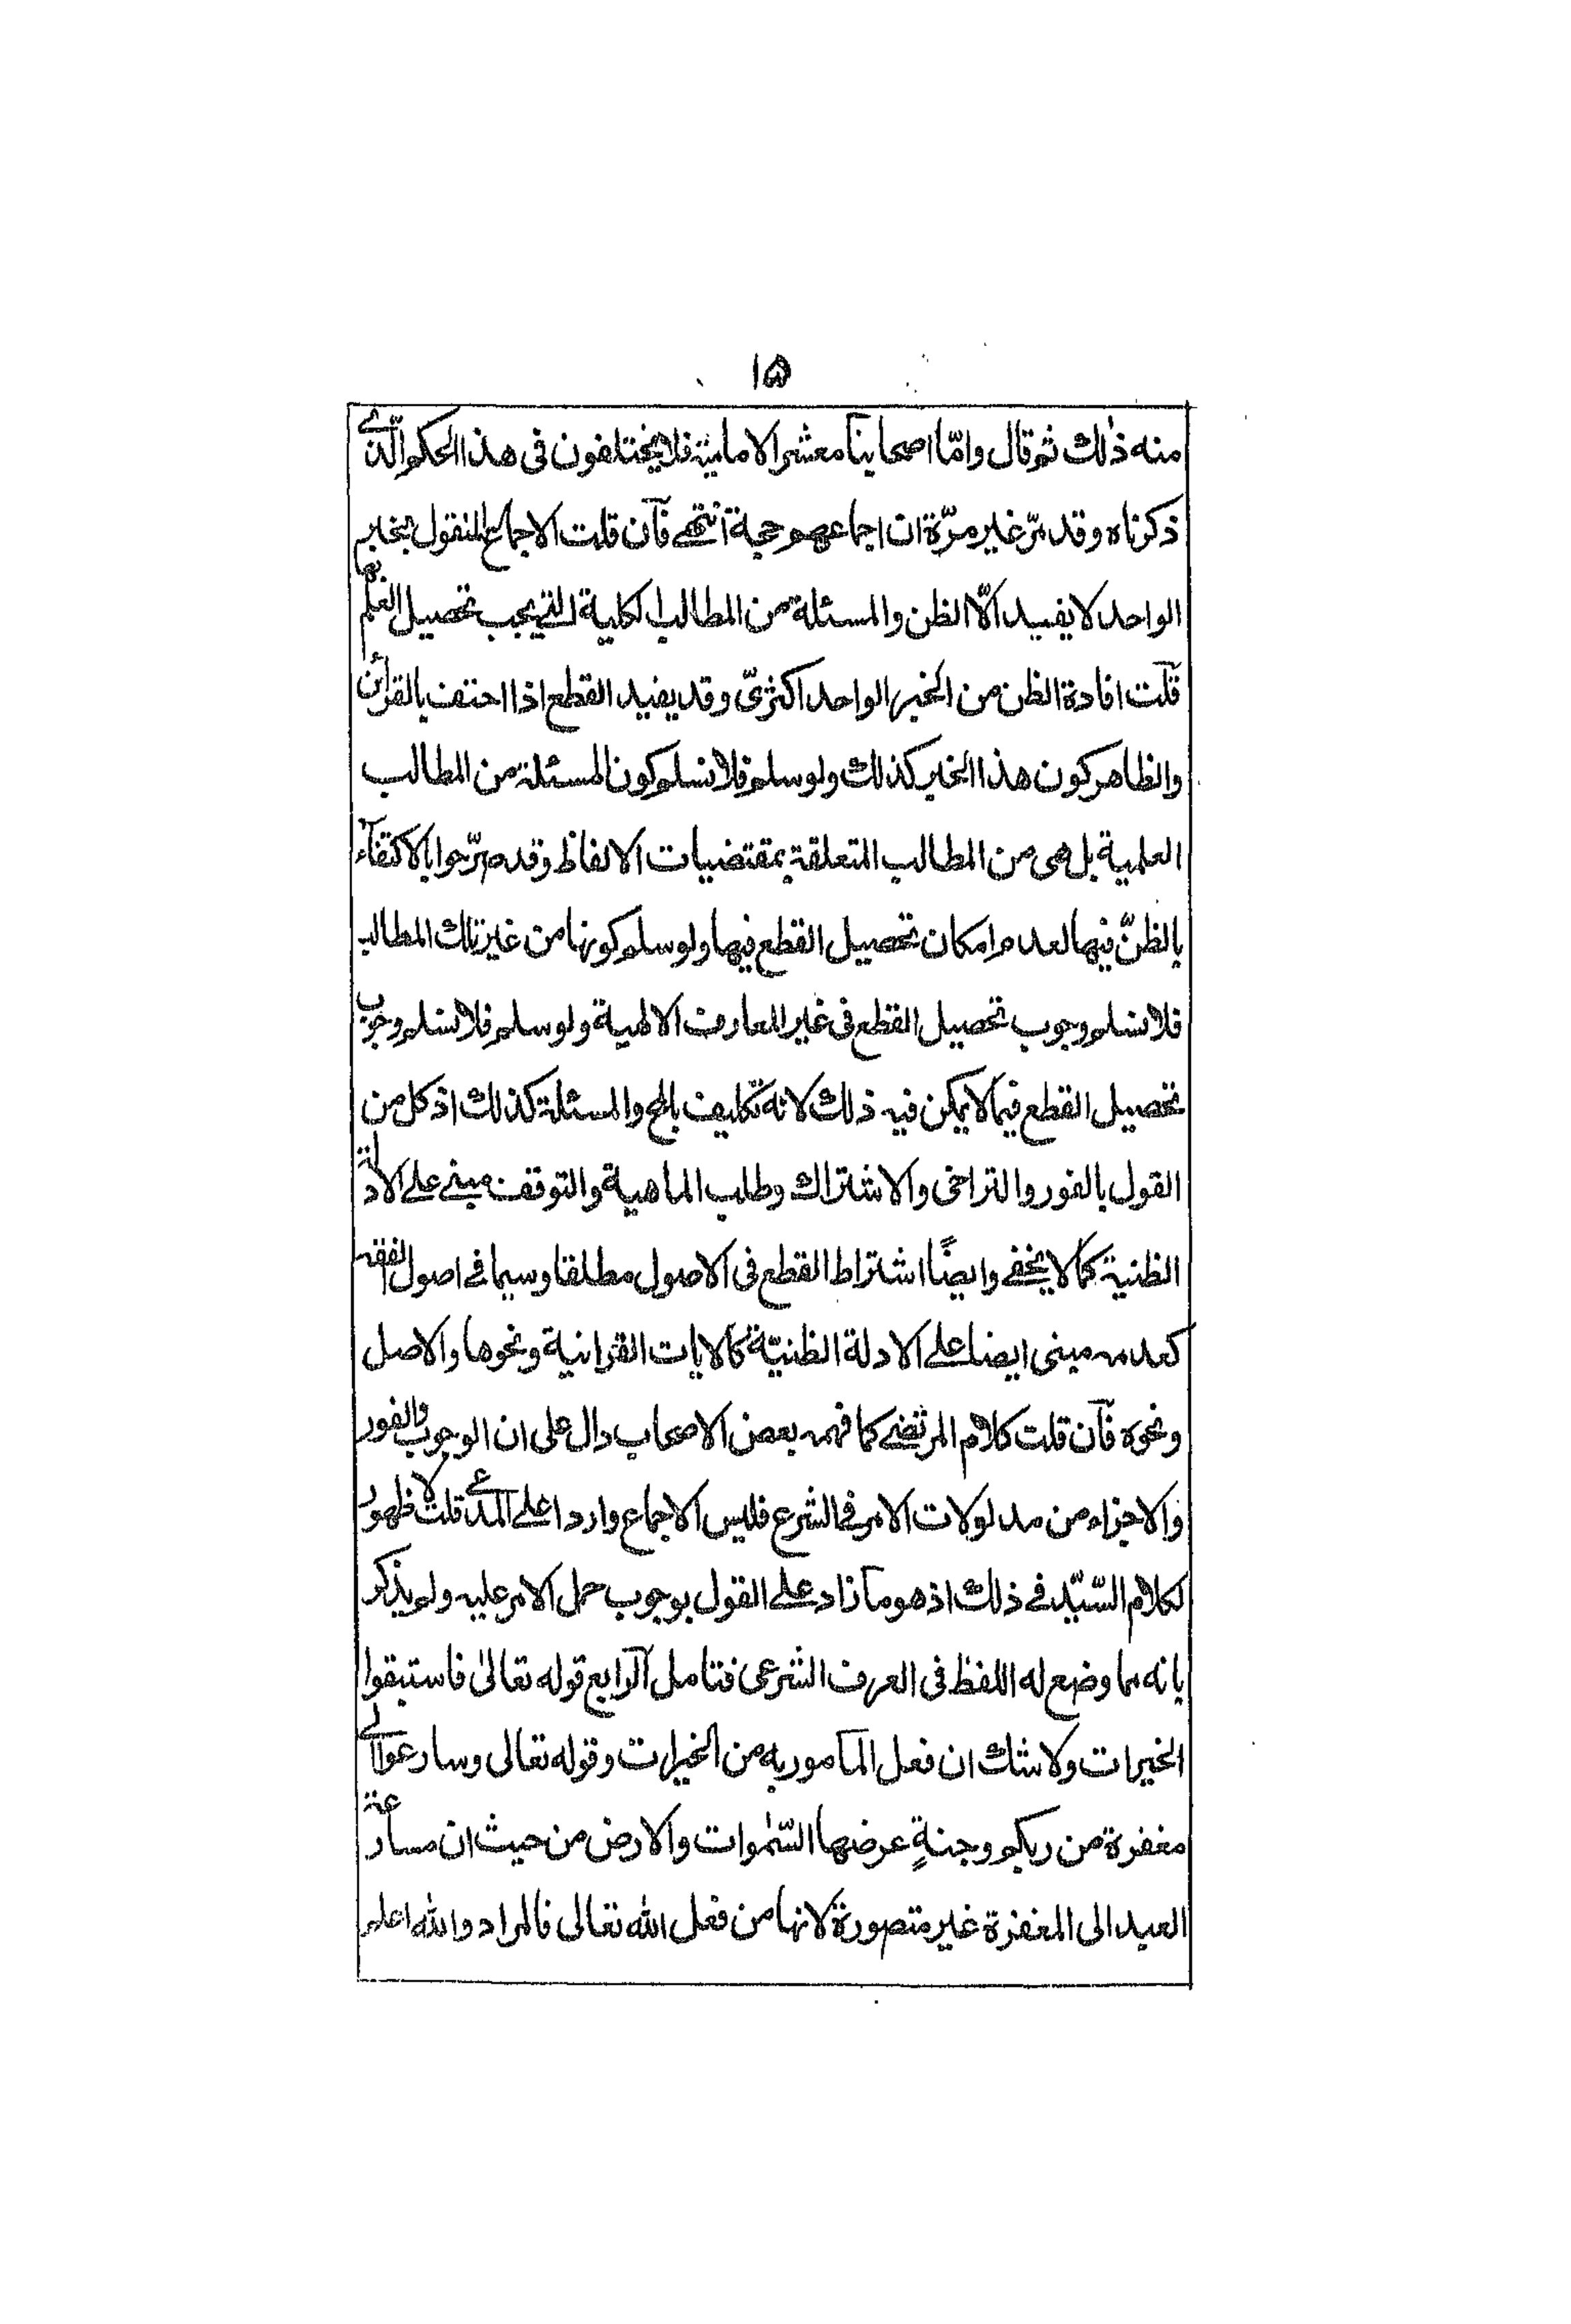 ١٥
منه ذلك ثم قال وامّا اصحابنا معشر الامامية فلا يختلفون فى هذا الحكم الّذى
ذكرناه وقد مرّ غير مرّة ان اجماعهم حجة انتهى فان قلت الاجماع المنقول بخبر
الواحد لا يفيد الّا الظن والمسئلة من المطالب الكلية التي يجب تحصيل العلم بها
قلت افادة الظن من الخبر الواحد اكثرىّ وقد يفيد القطع اذا احتف بالقرائن
والظاهر كون هذا الخبر كذلك ولو سلم فلا نسلم كون المسئلة من المطالب
العلمية بل هى من المطالب المتعلقة بمقتضيات الالفاظ وقد صرّحوا بالاكتفآء
بالظنّ فيها لعدم امكان تحصيل القطع فيها ولو سلم كونها من غير تلك المطالب
فلا نسلم وجوب تحصيل القطع فى غير المعارف الالهية ولو سلم فلا نسلم وجوب
تحصيل القطع فيما لا يمكن فيه ذلك لانه تكليف بالمح والمسئلة كذلك اذ كل من
القول بالفور والتراخى والاشتراك وطلب الماهية والتوقف مبنى على الادلة
الظنية كما لا يخفى وايضًا اشتراط القطع فى الاصول مطلقا وسيما فى اصول الفقه
كعدمه مبنى ايضا على الادلة الظنيّة كالايات القرانية ونحوها والاصل
ونحوه فان قلت كلام المرتضى كما فهمه بعض الاصحاب دال على ان الوجوب والفور
والاجزاء من مدلولات الامر فى الشرع فليس الاجماع واردا على المدعى قلت لا ظهور
لكلام السّيّد فى ذلك اذ هو ما زاد على القول بوجوب حمل الامر عليه ولم يذكر
بانه مما وضع له اللفظ فى العرف الشرعى فتامل الرابع قوله تعالى فاستبقوا
الخيرات ولا شك ان فعل المأمور به من الخيرات وقوله تعالى وسارعوا الى
مغفرة من ربكم وجنةٍ عرضها السّموات والارض من حيث ان مسارعة
العبد الى المغفرة غير متصورة لانها من فعل الله تعالى فالمراد والله اعلم